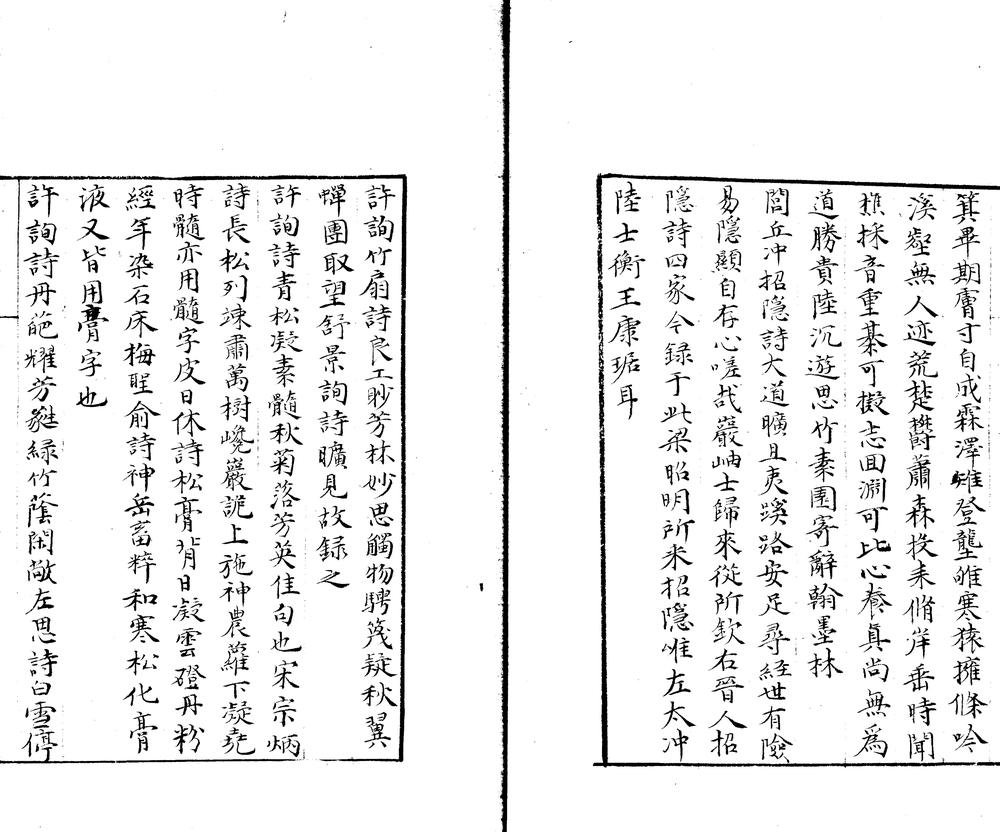 箕畢期膚寸自成霖澤雉登壟雊寒猿擁條吟
溪壑無人迹荒楚欝蕭森投耒脩岸垂時聞
樵採音重基可擬志囬淵可比心養真尚無為
道勝貴陸沉遊思竹素園寄辭翰墨林
閭丘沖招隱詩大道曠且夷蹊路安足尋經世有險
易隱顯自存心嗟哉巖岫士歸來從所欽右晉人招
隱詩四家今録于此梁昭明所采招隱惟左太冲
陸士衡王康琚耳
許詢竹扇詩良工眇芳林妙思觸物騁篾疑秋翼
蟬團取望舒景詢詩曠見故録之
許詢詩青松凝素髓秋菊落芳英佳句也宋宗炳
詩長松列竦肅萬樹巉巖詭上施神農蘿下凝堯
時髓亦用髓字皮日休詩松膏背日凝雲磴丹粉
經年染石床梅聖俞詩神岳畜粹和寒松化膏
液又皆用膏字也
許詢詩丹葩耀芳蕤緑竹蔭閑敞左思詩白雪停